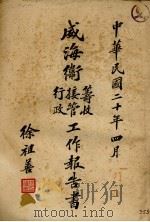 中華民國二十年四月
威海衛籌收接管行政工作報告書
徐祖善